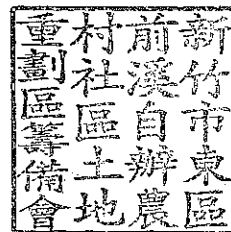 新竹市東區
前溪自辦農
村社區土地
重劃區籌備會